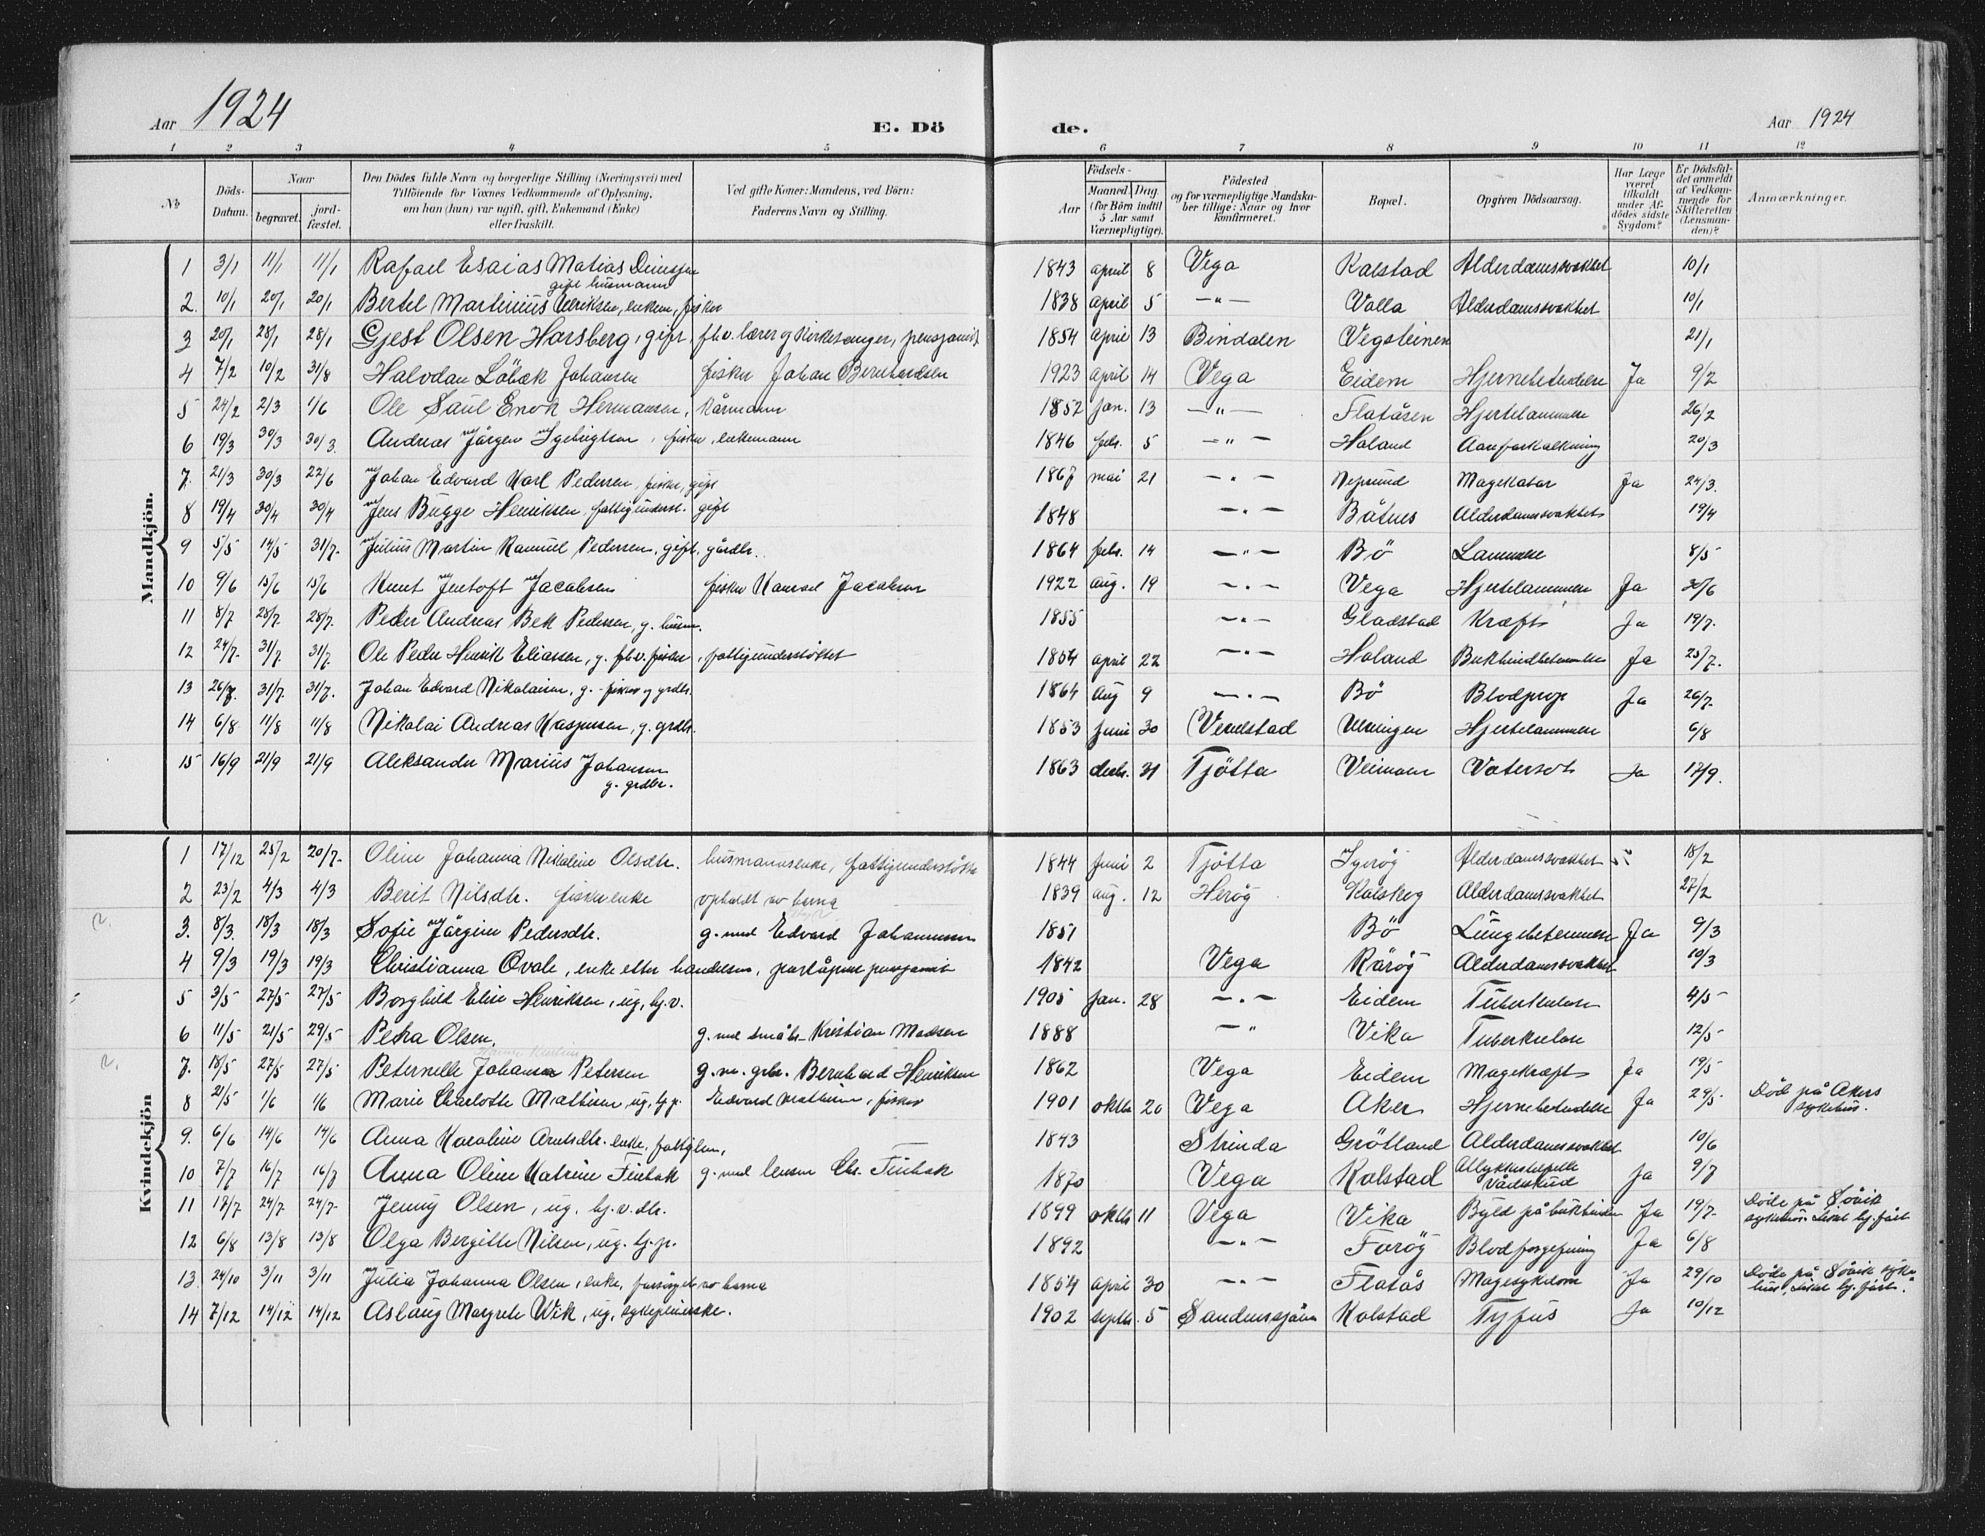 Aar 1924
E. Dö
de.
Aar 1924
1 2 3 4 5 6 7 8 9 10 11 12
No
Döds-Datum.
Naar
begravet.
jordfæstet.
Den Dödes fulde Navn og borgerlige Stilling (Næringsvei) med
Tilföiende for Voxnes Vedkommende af Oplysning,
om han (hun) var ugift, gift, Enkemand (Enke)
eller fraskilt.
Ved gifte Koner: Mandens, ved Börn:
Faderens Navn og Stilling.
Födsels-
Aar
Maaned. Dag.
(for Börn indtil
5 Aar samt
Værnepligtige).
Födested
og for værnepligtige Mandskaber tillige: Naar og hvor
konfirmeret.
Bopæl.
Opgiven Dödsaarsag.
Har Læge
været
tilkaldt
under Afdödes sidste
Sygdom?
Er Dödsfaldet anmeldt
af Vedkommende for
Skifteretten
(Lensmanden)?
Anmærkninger.
Mandkjön.
1 3/1 11/1 11/1 Rafael Esaias Matias gift husmann 1843 april 8 Vega Kalstad Alderdomssvakhet 10/1
2. 10/1 20/1 20/1 Bertel Martinius Ulriksen, enkem, fisker 1838 april 5 -"- Valla Alderdomssvakhet 10/1
3 20/1 28/1 28/1 Gjest Olsen Horsberg, gift, fhv. lærer og kirkesanger, pensjonist 1854 april 13 Bindalen Vegsteinen 21/1
4 7/2 10/2 31/8 Halvdan Löbak Johansen fisker Johan Bernhardsen 1923 april 14 Vega Eidem Hjernebetændelse Ja 9/2
5 24/2 2/3 1/6 Ole Saul Enok Hermansen, kårmann 1852 jan. 13 -"- Flatåsen Hjertelammelse 26/2
6 19/3 30/3 30/3. Andreas Jörgen Ingebrigtsen, fisker, enkemann 1846 febr. 5 -"- Holand Aareforkalkning 20/3
7. 21/3 30/3 22/6 Johan Edvard Karl Pedersen, fisker, gift 1867 mai 21 -"- Nepsund Magekatar Ja 24/3.
8 19/4 30/4 30/4 Jens Bugge Henriksen, fattigunderst. gift 1848 -"- Båtnes Alderdomssvakhet 19/4
9 5/5 14/5 31/7. Julius Martin Samuel Pedersen, gift, gårdbr. 1864 febr. 14 -"- Bö Lammelse 8/5
10 9/6 15/6 15/6 Knut Jentoft Jacobsen fisker Konrad Jacobsen 1922 aug. 19 -"- Vega Hjertelammelse Ja 30/6
11 8/7 28/7 28/7. Peder Andreas Bek Pedersen, g. husm. 1855 -"- Gladstad Kræft Ja 19/7.
12 24/7. 31/7 31/7. Ole Peder Henrik Eliassen, g. fhv. fisker, fattigunderstöttet 1854 april 22 -"- Holand Bukhindbetændelse Ja 25/7.
13 26/7. 31/7. 31/7. Johan Edvard Nikolaisen, g. fisker og grdbr. 1864 aug 9 -"- Bö Blodprop Ja 26/7.
14 6/8 11/8 11/8 Nikolai Andreas Kaspersen, g. grdbr. 1853 juni 30 Vevelstad Hjertelammelse 6/8
15 16/9 21/9 21/9 Aleksander Marius Johansen g. grdbr. 1863 decbr. 31 Tjötta Vatersot Ja 17/9.
Kvindekjön
1 17/12 25/2 20/7. Oline Johanna Nikoline Olsdtr. husmannsenke, fattigunderstöttet 1844 juni 2 Tjötta Igeröy Alderdomssvakhet 18/2
2 23/2 4/3 4/3 Berit Nilsdtr. fiskerenke opholdt av barna 1839 aug. 12 Heröy Kalskog Alderdomssvakhet 27/2
2.
3. 8/3. 18/3 18/3 Sofie Jörgine Pedersdtr. g. med Edvard Johannesen 1851 Bö Lungebetennelse Ja 9/3
4 9/3 19/3 19/3 Christianna Qvale, enke efter handelsm, poståpner pensjonist 1842 Vega Råröy Alderdomssvakhet 10/3
5 3/5 27/5 27/5 Borghild Elise Henriksen, ug, hj.v. 1905 jan. 28 -"- Eidem Tuberkulose 4/5
6 11/5 21/5 29/5 Petra Olsen, g. med småbr. Kristian Madsen 1888 -"- Vika Tuberkulose 12/5
2.
7. 18/5 27/5 27/5 Peternelle Johansen Petersen g. m. grbr. Bernhard Henriksen 1862 Vega Eidem Magekræft Ja 19/5
8 21/5 1/6 1/6 Marie Charlotte Mathisen ug. hj.p. Edvard Mathisen, fisker 1901 oktbr 20 Vega Aker Hjernebetændelse Ja 24/5 Död på Akers sykehus.
9. 6/6 14/6 14/6 Anna Karoline Arntsdtr. enke, fattiglem, 1843 Strinda Grötland Alderdomssvakhet 10/6
10 7/7 16/7 16/7 Anna Oline Katrine Finbak g. med lensm Chr. Finbak 1870 Vega Kolstad Ulykkestilfelle Vådeskud Ja 9/7
11 17/7 24/7 24/7. Jenny Olsen, ug. hj.v. dtr. 1899 oktbr 11 Vega Vika Byld på bukhinden Ja 19/7. Döde på Sövik sykehus.
12 6/8 13/8 13/8 Olga Bergitte Nilsen, ug. hj.p. 1892 -"- Foröy Blodforgiftning Ja 6/8
13. 24/10 3/11 3/11 Julia Johanna Olsen, enke, forsörget av barna 1854 april 30 -"- Flatås Magesykdom Ja 29/10 Döde på Sövik sykehus
14 7/12 14/12 14/12 Aslaug Margrete Wik, ug, sykepleierske. 1902 septbr. 5 Sandnessjöen Kolstad Tyfus Ja 10/12